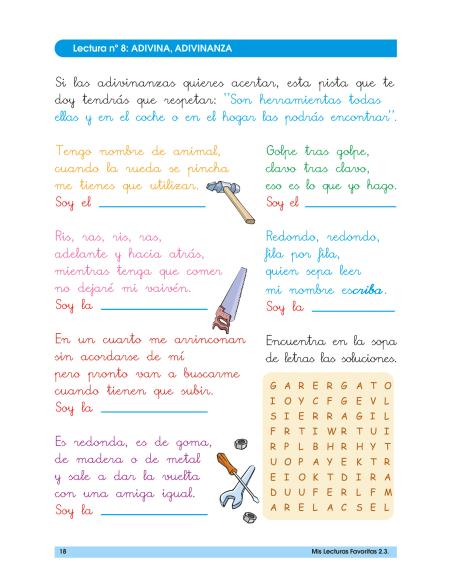 Lectura nº 8: ADIVINA, ADIVINANZA
Si las adivinanzas quieres acertar, esta pista que te
doy tendrás que respetar: "Son herramientas todas
ellas y en el coche o en el hogar las podrás encontrar".
Tengo nombre de animal,
cuando la rueda se pincha
me tienes que utilizar.
Soy el
Golpe tras golpe,
clavo tras clavo,
eso es lo que yo hago.
Soy el
Ris, ras, ris, ras,
adelante y hacia atrás,
mientras tenga que comer
no dejaré mi vaivén.
Soy la
Redondo, redondo,
fila por fila,
quien sepa leer
mi nombre escriba.
Soy la
En un cuarto me arrinconan
sin acordarse de mí
pero pronto van a buscarme
cuando tienen que subir.
Soy la
Es redonda, es de goma,
de madera o de metal
y sale a dar la vuelta
con una amiga igual.
Soy la
Encuentra en la sopa
de letras las soluciones.
G A R E R G A T O
I O Y C F G E V L
S I E R R A G I L
F R T I W R T U I
R P L B H R H Y T
U O P A Y E K T R
E I O K T D I R A
D U U F E R L F M
A R E L A C S E L
18
Mis Lecturas Favoritas 2.3.